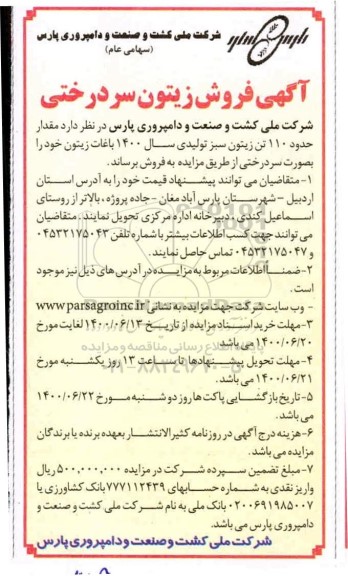 شرکت ملی کشت و صنعت و دامپروری پارس
(سهامی عام)
آگهی فروش زیتون سردرختی
شرکت ملی کشت و صنعت و دامپروری پارس در نظر دارد مقدار
حدود ۱۱۰ تن زیتون سبز تولیدی سال ۱۴۰۰ باغات زیتون خود را
بصورت سردرختی از طریق مزایده به فروش برساند.
۱- متقاضیان می توانند پیشنهاد قیمت خود را به آدرس استان
اردبیل - شهرستان پارس آباد مغان - جاده پروژه، بالاتر از روستای
اسماعیل کندی، دبیرخانه اداره مرکزی تحویل نمایند. متقاضیان
می توانند جهت کسب اطلاعات بیشتر با شماره تلفن ۰۴۵۳۲۱۷۵۰۴۳
و ۰۴۵۳۲۱۷۵۰۴۷ تماس حاصل نمایند.
۲- ضمناً اطلاعات مربوط به مزایده در آدرس های ذیل نیز موجود
است.
- وب سایت شرکت جهت مزایده به نشانی www.parsagroinc.ir
۳- مهلت خرید اسناد مزایده از تاریخ ۱۴۰۰/۰۶/۱۳ لغایت مورخ
۱۴۰۰/۰۶/۲۰ می باشد.
۴- مهلت تحویل پیشنهادها تا ساعت ۱۳ روز یکشنبه مورخ
۱۴۰۰/۰۶/۲۱ می باشد.
۵- تاریخ بازگشایی پاکت ها روز دوشنبه مورخ ۱۴۰۰/۰۶/۲۲
می باشد.
۶- هزینه درج آگهی در روزنامه کثیرالانتشار بعهده برنده یا برندگان
مزایده می باشد.
۷- مبلغ تضمین سپرده شرکت در مزایده ۵۰۰,۰۰۰,۰۰۰ ریال
واریز نقدی به شماره حسابهای ۷۷۷۱۱۲۴۳۹ بانک کشاورزی یا
۰۲۰۰۶۹۱۹۸۵۰۰۷ بانک ملی به نام شرکت ملی کشت و صنعت و
دامپروری پارس می باشد.
شرکت ملی کشت و صنعت و دامپروری پارس